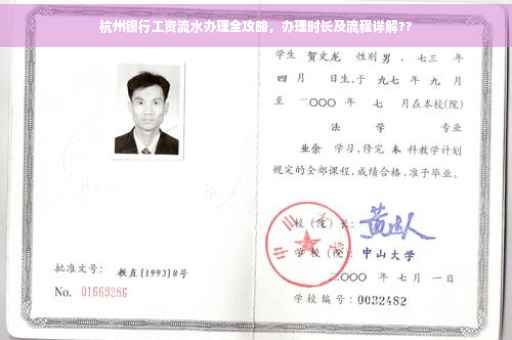 杭州银行工资流水办理全攻略，办理时长及流程详解??
学生 贺文龙 性别 男 、 七三 年
四 月 日生,于 九七 年 九 月
至 二〇〇〇 年 七 月在本校(院)
法 学 专业
业余 学习,修完 本 科教学计划
规定的全部课程,成绩合格,准予毕业。
校（院）长：
学校（院）：中山大学
二〇〇〇 年 七月 一日
学校编号：0032482
批准文号： 教直(1993)8号
No. 01669286